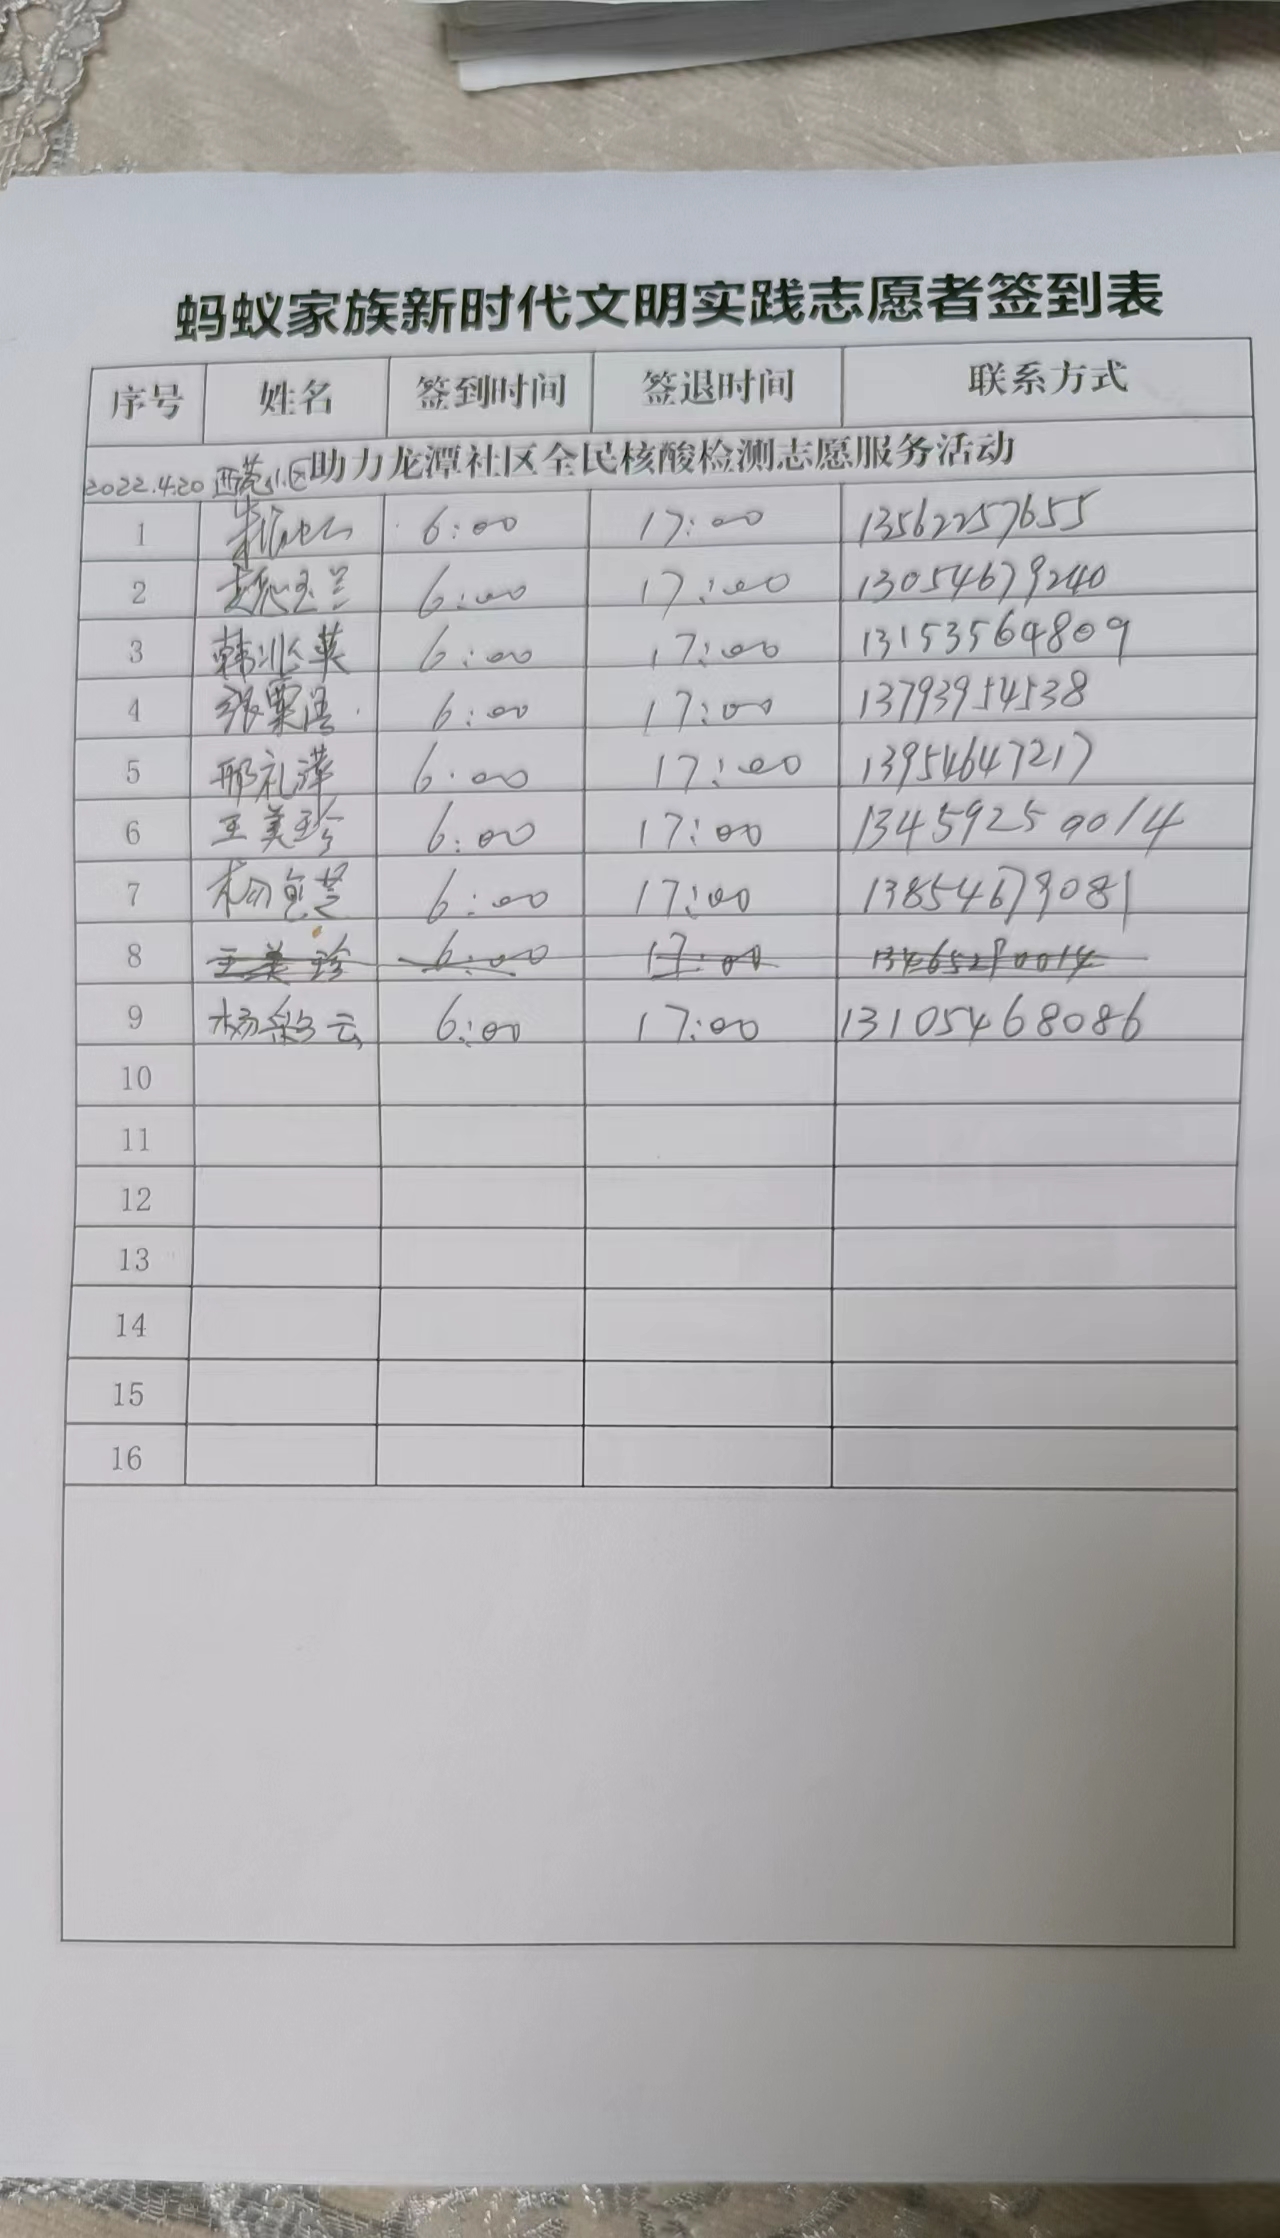 蚂蚁家族新时代文明实践志愿者签到表
序号 姓名 签到时间 签退时间 联系方式
2022.4.20 西苑小区助力龙潭社区全民核酸检测志愿服务活动
1 6:00 17:00 13562257655
2 赵玉兰 6:00 17:00 13054679240
3 韩兆英 6:00 17:00 13153564809
4 6:00 17:00 13793954538
5 邢礼泽 6:00 17:00 13954647217
6 王美珍 6:00 17:00 13459250014
7 6:00 17:00 13854679081
8 王美珍 6:00 17:00
9 杨彩云 6:00 17:00 13105468086
10
11
12
13
14
15
16